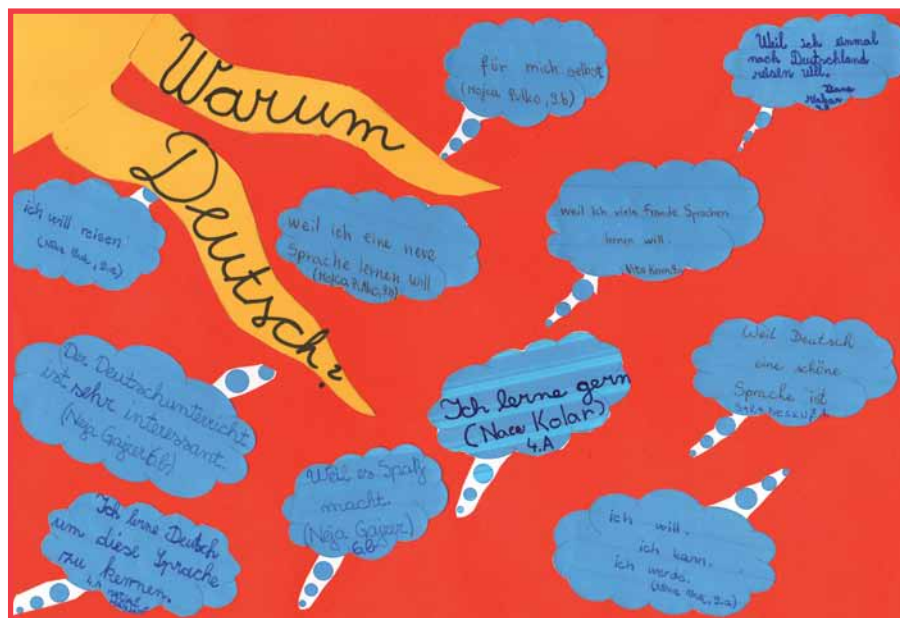 Warum
Deutsch?
für mich selbst
(Mojca Pulko, 9.b)
Weil ich einmal
nach Deutschland
reisen will.
ich will reisen
weil ich eine neue
Sprache lernen will
(Mojca Pulko, 9.b)
weil ich viele Fremde Sprachen
lernen will.
Der Deutschunterricht
ist sehr interessant.
(Neja Gajser 6.b)
Ich lerne gern
(Nace Kolar)
4.A
Weil Deutsch
eine schöne
Sprache ist
Weil es Spaß
macht.
(Neja Gajser)
6.b
Ich lerne Deutsch
um diese Sprache
zu kennen.
4.A
ich will.
ich kann.
ich werde.